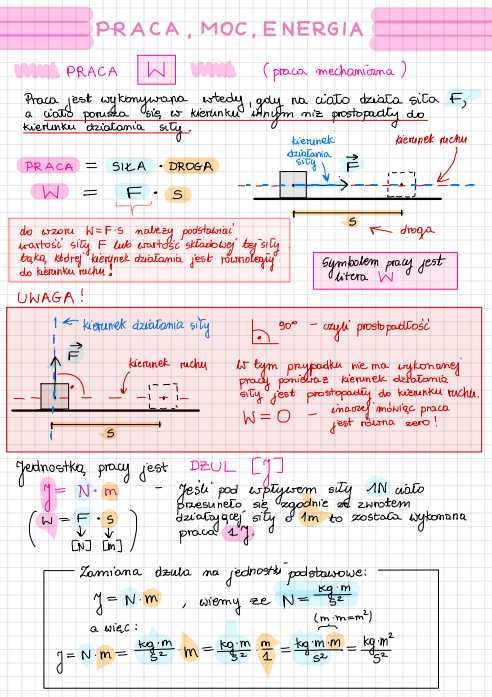 PRACA, MOC, ENERGIA
PRACA W (praca mechaniczna)
Praca jest wykonywana wtedy, gdy na ciało działa siła F,
a ciało porusza się w kierunku innym niż prostopadły do
kierunku działania siły.
PRACA = SIŁA · DROGA
W = F · s
kierunek
działania
siły
F
kierunek ruchu
s
droga
do wzoru W=F·s należy podstawiać
wartość siły F lub wartość składowej tej siły
taką, której kierunek działania jest równoległy
do kierunku ruchu!
Symbolem pracy jest
litera W
UWAGA!
kierunek działania siły
F
kierunek ruchu
s
90° - czyli prostopadłość
W tym przypadku nie ma wykonanej
pracy ponieważ kierunek działania
siły jest prostopadły do kierunku ruchu.
W = 0 - inaczej mówiąc praca
jest równa zero!
Jednostką pracy jest DŻUL [J]
J = N · m
(W = F · s)
[N] [m]
- Jeśli pod wpływem siły 1N ciało
przesunęło się zgodnie ze zwrotem
działającej siły o 1m to została wykonana
praca 1J.
Zamiana dżula na jednostki podstawowe:
J = N · m , wiemy że N = kg·m/s²
a więc: (m·m=m²)
J = N·m = kg·m/s² · m = kg·m/s² · m/1 = kg·m·m/s² = kg·m²/s²